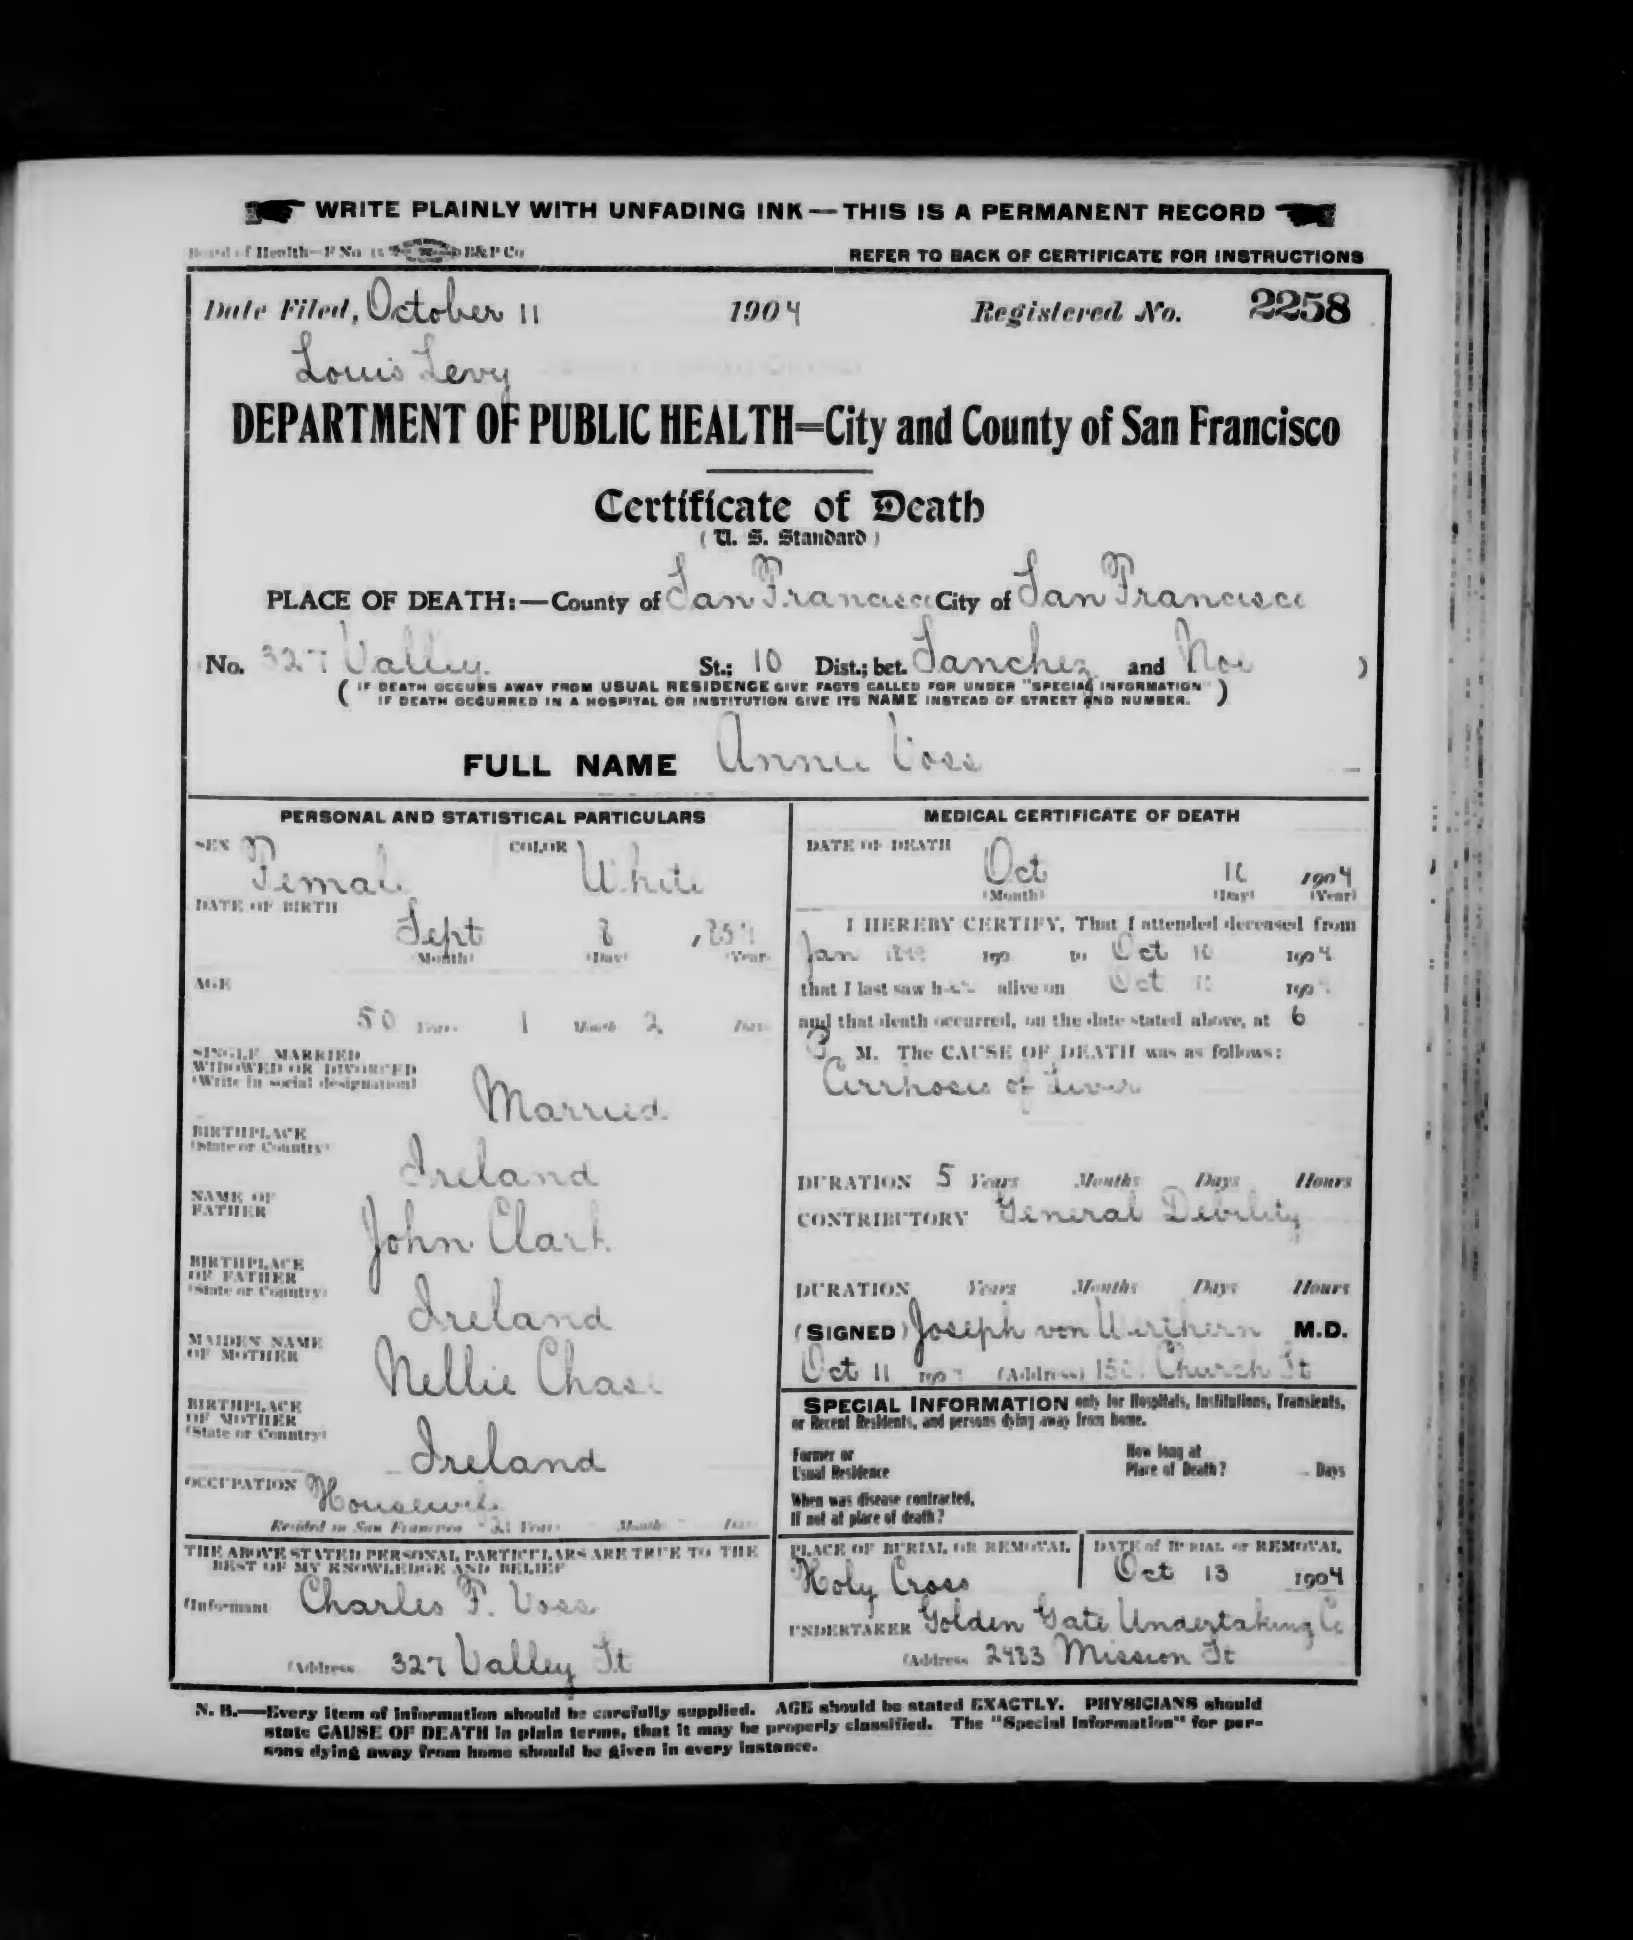 WRITE PLAINLY WITH UNFADING INK — THIS IS A PERMANENT RECORD
Board of Health—F No B&P Co
REFER TO BACK OF CERTIFICATE FOR INSTRUCTIONS
Date Filed, October 11 1904 Registered No. 2258
Louis Levy
DEPARTMENT OF PUBLIC HEALTH=City and County of San Francisco
Certificate of Death
(U. S. Standard)
PLACE OF DEATH:—County of San Francisco City of San Francisco
No. 327 Valley St.; 10 Dist.; bet. Sanchez and Noe )
( IF DEATH OCCURS AWAY FROM USUAL RESIDENCE GIVE FACTS CALLED FOR UNDER "SPECIAL INFORMATION" )
IF DEATH OCCURRED IN A HOSPITAL OR INSTITUTION GIVE ITS NAME INSTEAD OF STREET AND NUMBER.
FULL NAME Annie Voss
PERSONAL AND STATISTICAL PARTICULARS
SEX Female COLOR White
DATE OF BIRTH
Sept 8
(Month) (Day) (Year)
AGE
50 Years 1 Month 2 Days
SINGLE MARRIED
WIDOWED OR DIVORCED
(Write in social designation)
Married
BIRTHPLACE
(State or Country)
Ireland
NAME OF
FATHER
John Clark
BIRTHPLACE
OF FATHER
(State or Country)
Ireland
MAIDEN NAME
OF MOTHER
Nellie Chase
BIRTHPLACE
OF MOTHER
(State or Country)
Ireland
OCCUPATION Housewife
Resided in San Francisco Years Months Days
THE ABOVE STATED PERSONAL PARTICULARS ARE TRUE TO THE
BEST OF MY KNOWLEDGE AND BELIEF
(Informant Charles F. Voss
(Address 327 Valley St
MEDICAL CERTIFICATE OF DEATH
DATE OF DEATH
Oct 1904
(Month) (Day) (Year)
I HEREBY CERTIFY, That I attended deceased from
Jan 190 to Oct 10 1904
that I last saw h alive on Oct 190
and that death occurred, on the date stated above, at 6
P M. The CAUSE OF DEATH was as follows:
Cirrhosis of Liver
DURATION 5 Years Months Days Hours
CONTRIBUTORY General Debility
DURATION Years Months Days Hours
(SIGNED) Joseph von Werthern M.D.
Oct 11 190 (Address) Church St
SPECIAL INFORMATION only for Hospitals, Institutions, Transients,
or Recent Residents, and persons dying away from home.
Former or
Usual Residence
How long at
Place of Death? Days
When was disease contracted,
If not at place of death?
PLACE OF BURIAL OR REMOVAL
Holy Cross
DATE of BURIAL or REMOVAL
Oct 13 1904
UNDERTAKER Golden Gate Undertaking Co
(Address 2423 Mission St
N. B.—Every item of information should be carefully supplied. AGE should be stated EXACTLY. PHYSICIANS should
state CAUSE OF DEATH in plain terms, that it may be properly classified. The "Special Information" for per-
sons dying away from home should be given in every instance.